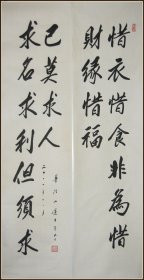 惜衣惜食非為惜
財緣惜福
求名求利但須求
己莫求人